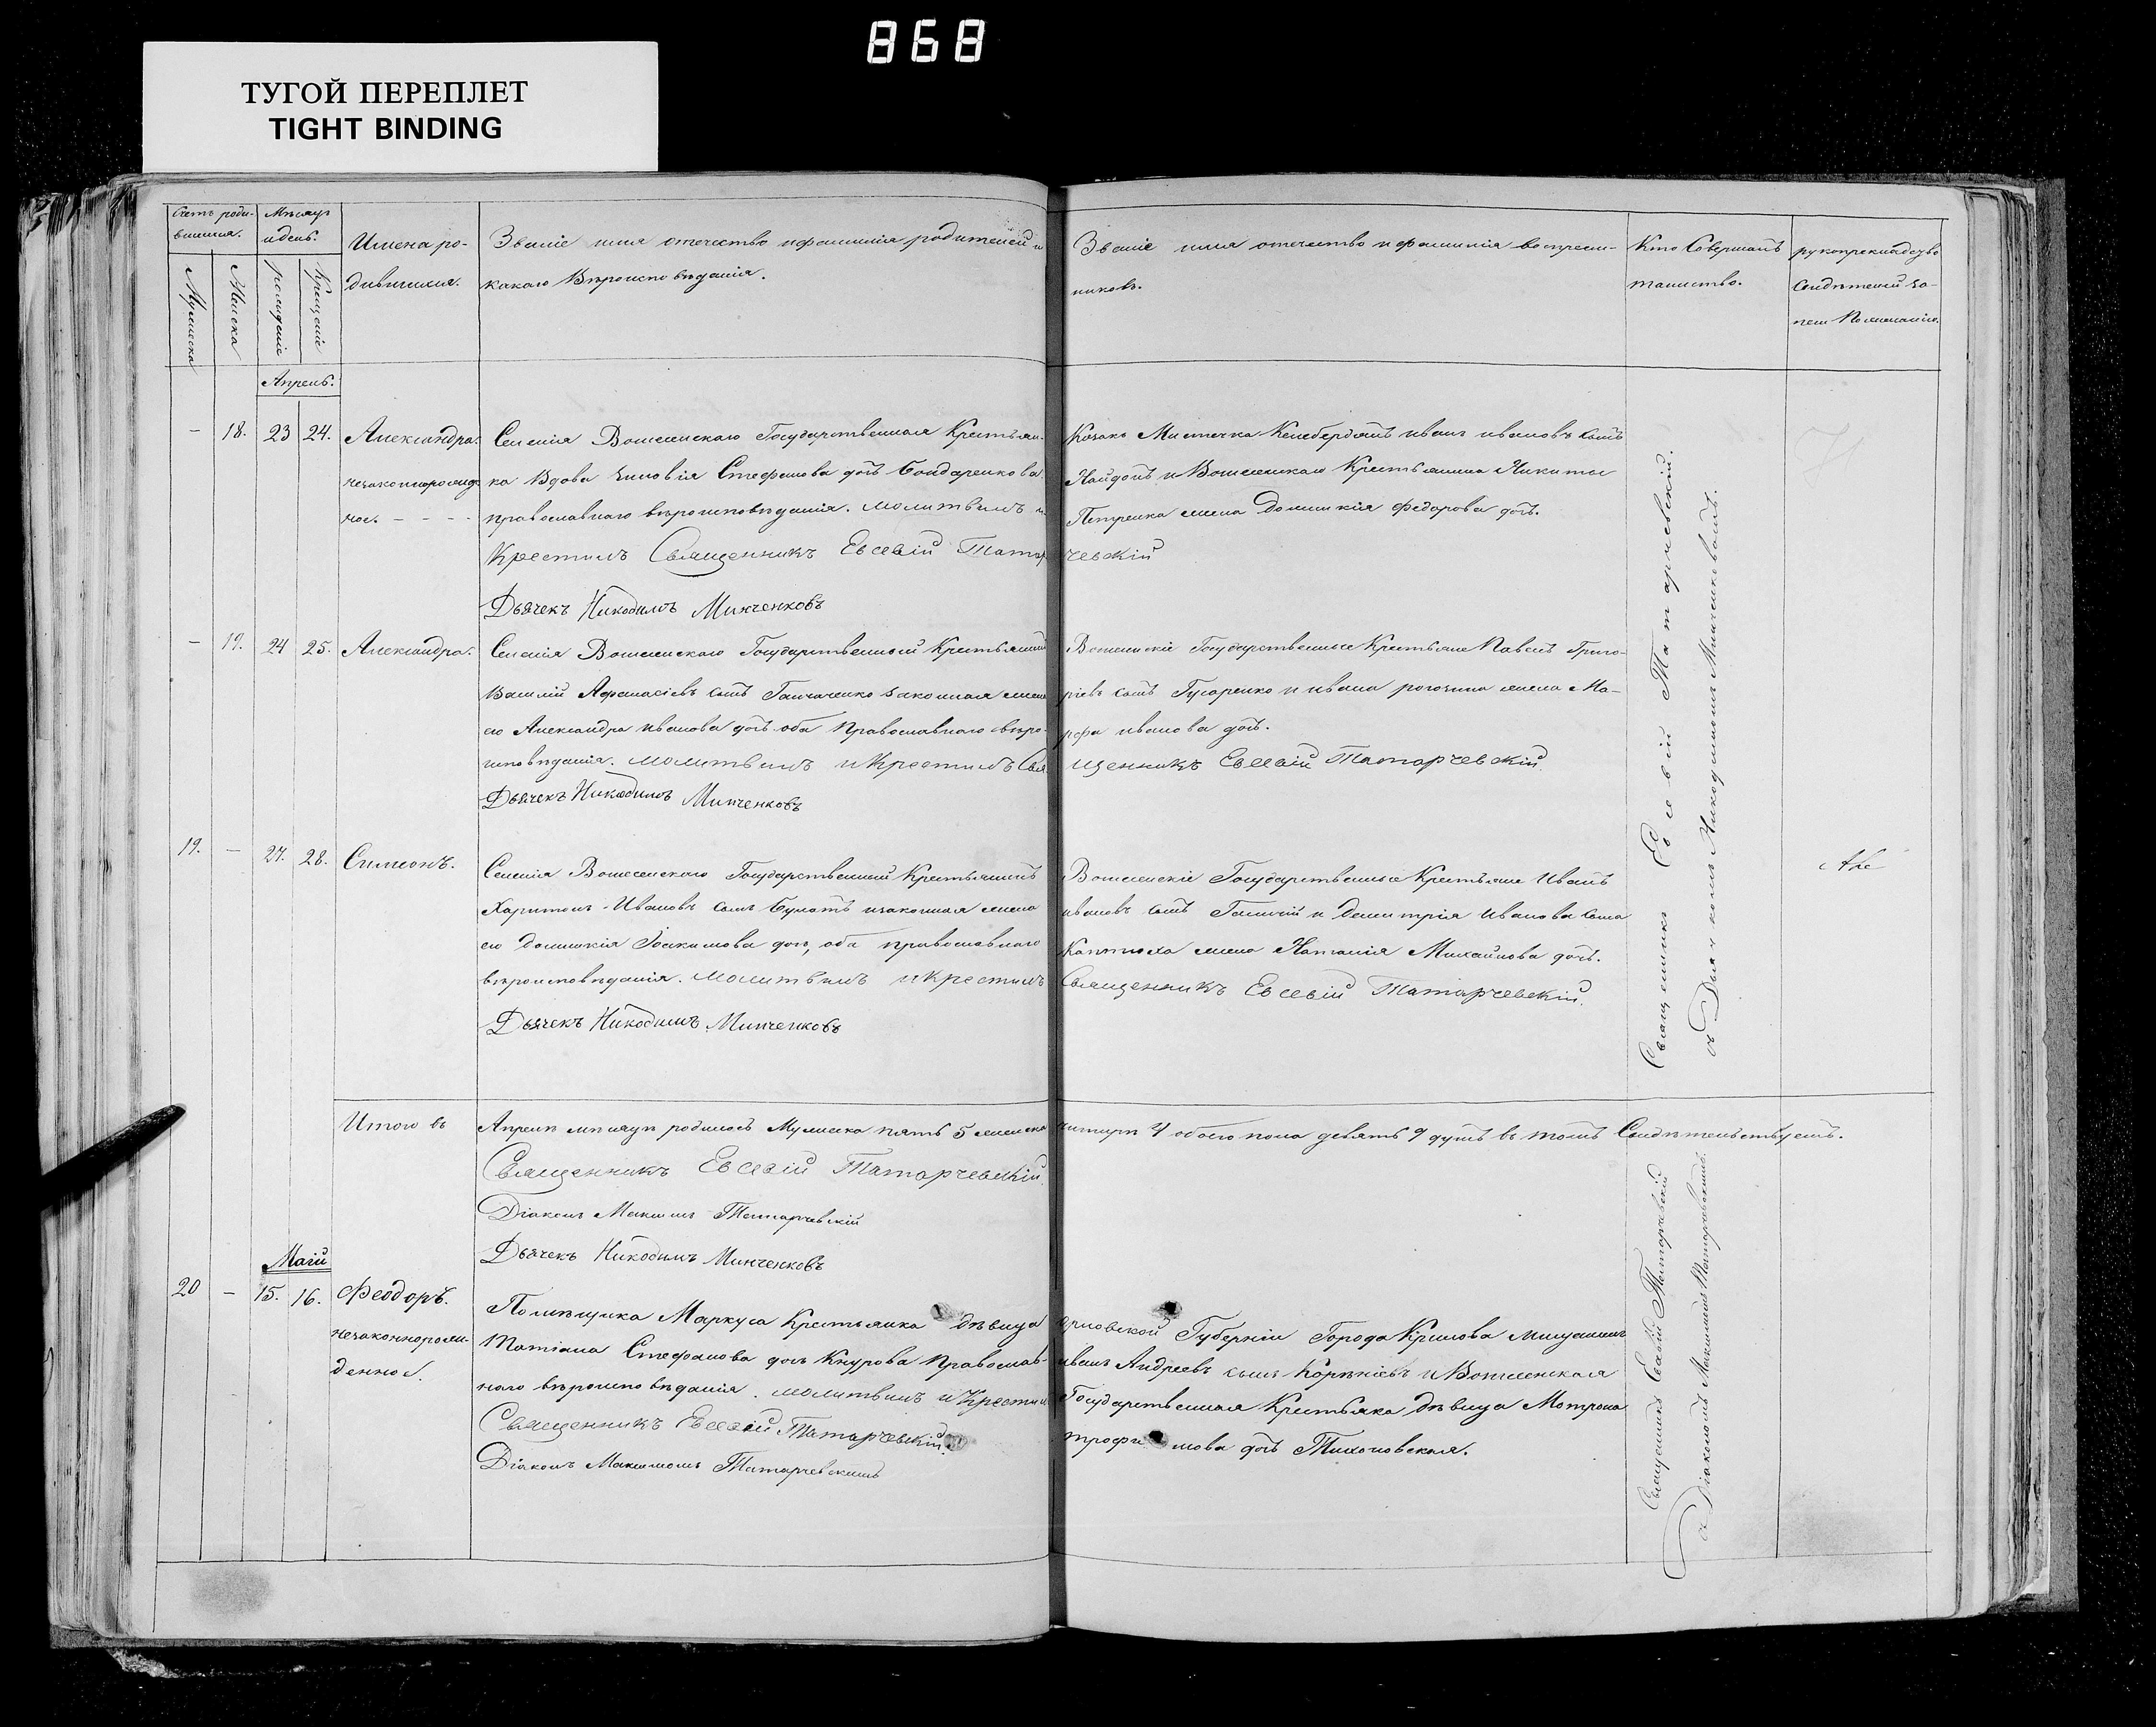 868
ТУГОЙ ПЕРЕПЛЕТ
TIGHT BINDING
Счетъ роди-
вшихся.
Мужеска
Женска
Мѣсяцъ
и день.
рожденіе
Крещеніе
Имена ро-
дившихся.
Званіе имя отечество и фамилія родителей и
какаго Вѣроисповѣданія.
Званіе имя отечество и фамилія воспріем-
никовъ.
Кто Совершалъ
таинство.
рукоприкладство
Свидѣтелей по-
Апрель.
– 18. 23 24.
Александра.
незаконнорожде
ная. – – –
Селенія Вошенскаго Государственная Крестьян-
ка Вдова Зиновія Стефанова дочь Бондаренкова
православнаго вѣроисповѣданія. молитвилъ и
Крестилъ Священникъ Евсевій Татар
Дьячекъ Никодимъ Минченковъ
Козакъ Мистечка Келебердытъ иванъ ивановъ сынъ
Найдонъ и Вошенскаго Крестьянина Никиты
Петренка жена Домникія федорова дочь.
чевскій
– 19. 24 25.
Александра.
Селенія Вошенскаго Государственный Крестьянинъ
Василій Афанасіевъ сынъ законная жена
его Александра иванова дочь оба Православнаго вѣро-
исповѣданія. молитвилъ и Крестилъ Свя
Дьячекъ Никодимъ Минченковъ
Вошенскіе Государственные Крестьяне Павелъ Григо-
ріевъ сынъ Гусаренко и ивана рогозина жена Ма-
рфа иванова дочь.
щенникъ Евсевій Татарчевскій.
19. – 27. 28.
Симеонъ.
Селенія Вошенскаго Государственный Крестьянинъ
Харитонъ Ивановъ сынъ и законная жена
его домникія Іоакимова дочь, оба православнаго
вѣроисповѣданія. молитвилъ и крестилъ
Дьячекъ Никодимъ Минченковъ
Вошенскіе Государственные Крестьяне Иванъ
ивановъ сынъ и димитрія Иванова сына
жена Наталія Михайлова дочь.
Священникъ Евсевій Татарчевскій.
Священникъ Евсевій Татарчевскій.
съ Дьячкомъ Никодимомъ Минченковымъ.
Итого въ
Апрелѣ мѣсяцѣ родилось Мужеска пять 5 женска
четыри 4 обоего пола девять 9 душъ въ томъ Свидѣтельствуетъ.
Священникъ Евсевій Татарчевскій.
Діаконъ Максимъ Татарчевскій
Дьячекъ Никодимъ Минченковъ
Маій
20 – 15. 16.
Феодоръ.
незаконнорож-
денной.
Помѣщика Маркуса Крестьянка дѣвица
Татіана Стефанова дочь Кнурова Православ-
наго вѣроисповѣданія. молитвилъ и Крестил
Священникъ Евсевій Татарчевскій.
Діаконъ Максимомъ Татарчевскимъ
Губерніи Города Крилова мищанинъ
иванъ Андреевъ сынъ Корѣніевъ и Вошенская
Государственная Крестьяка дѣвица Мотрона
трофимова дочь Тихоновская.
Священникъ Евсевій Татарчевскій
съ Діакономъ Максимомъ Татарчевскимъ.